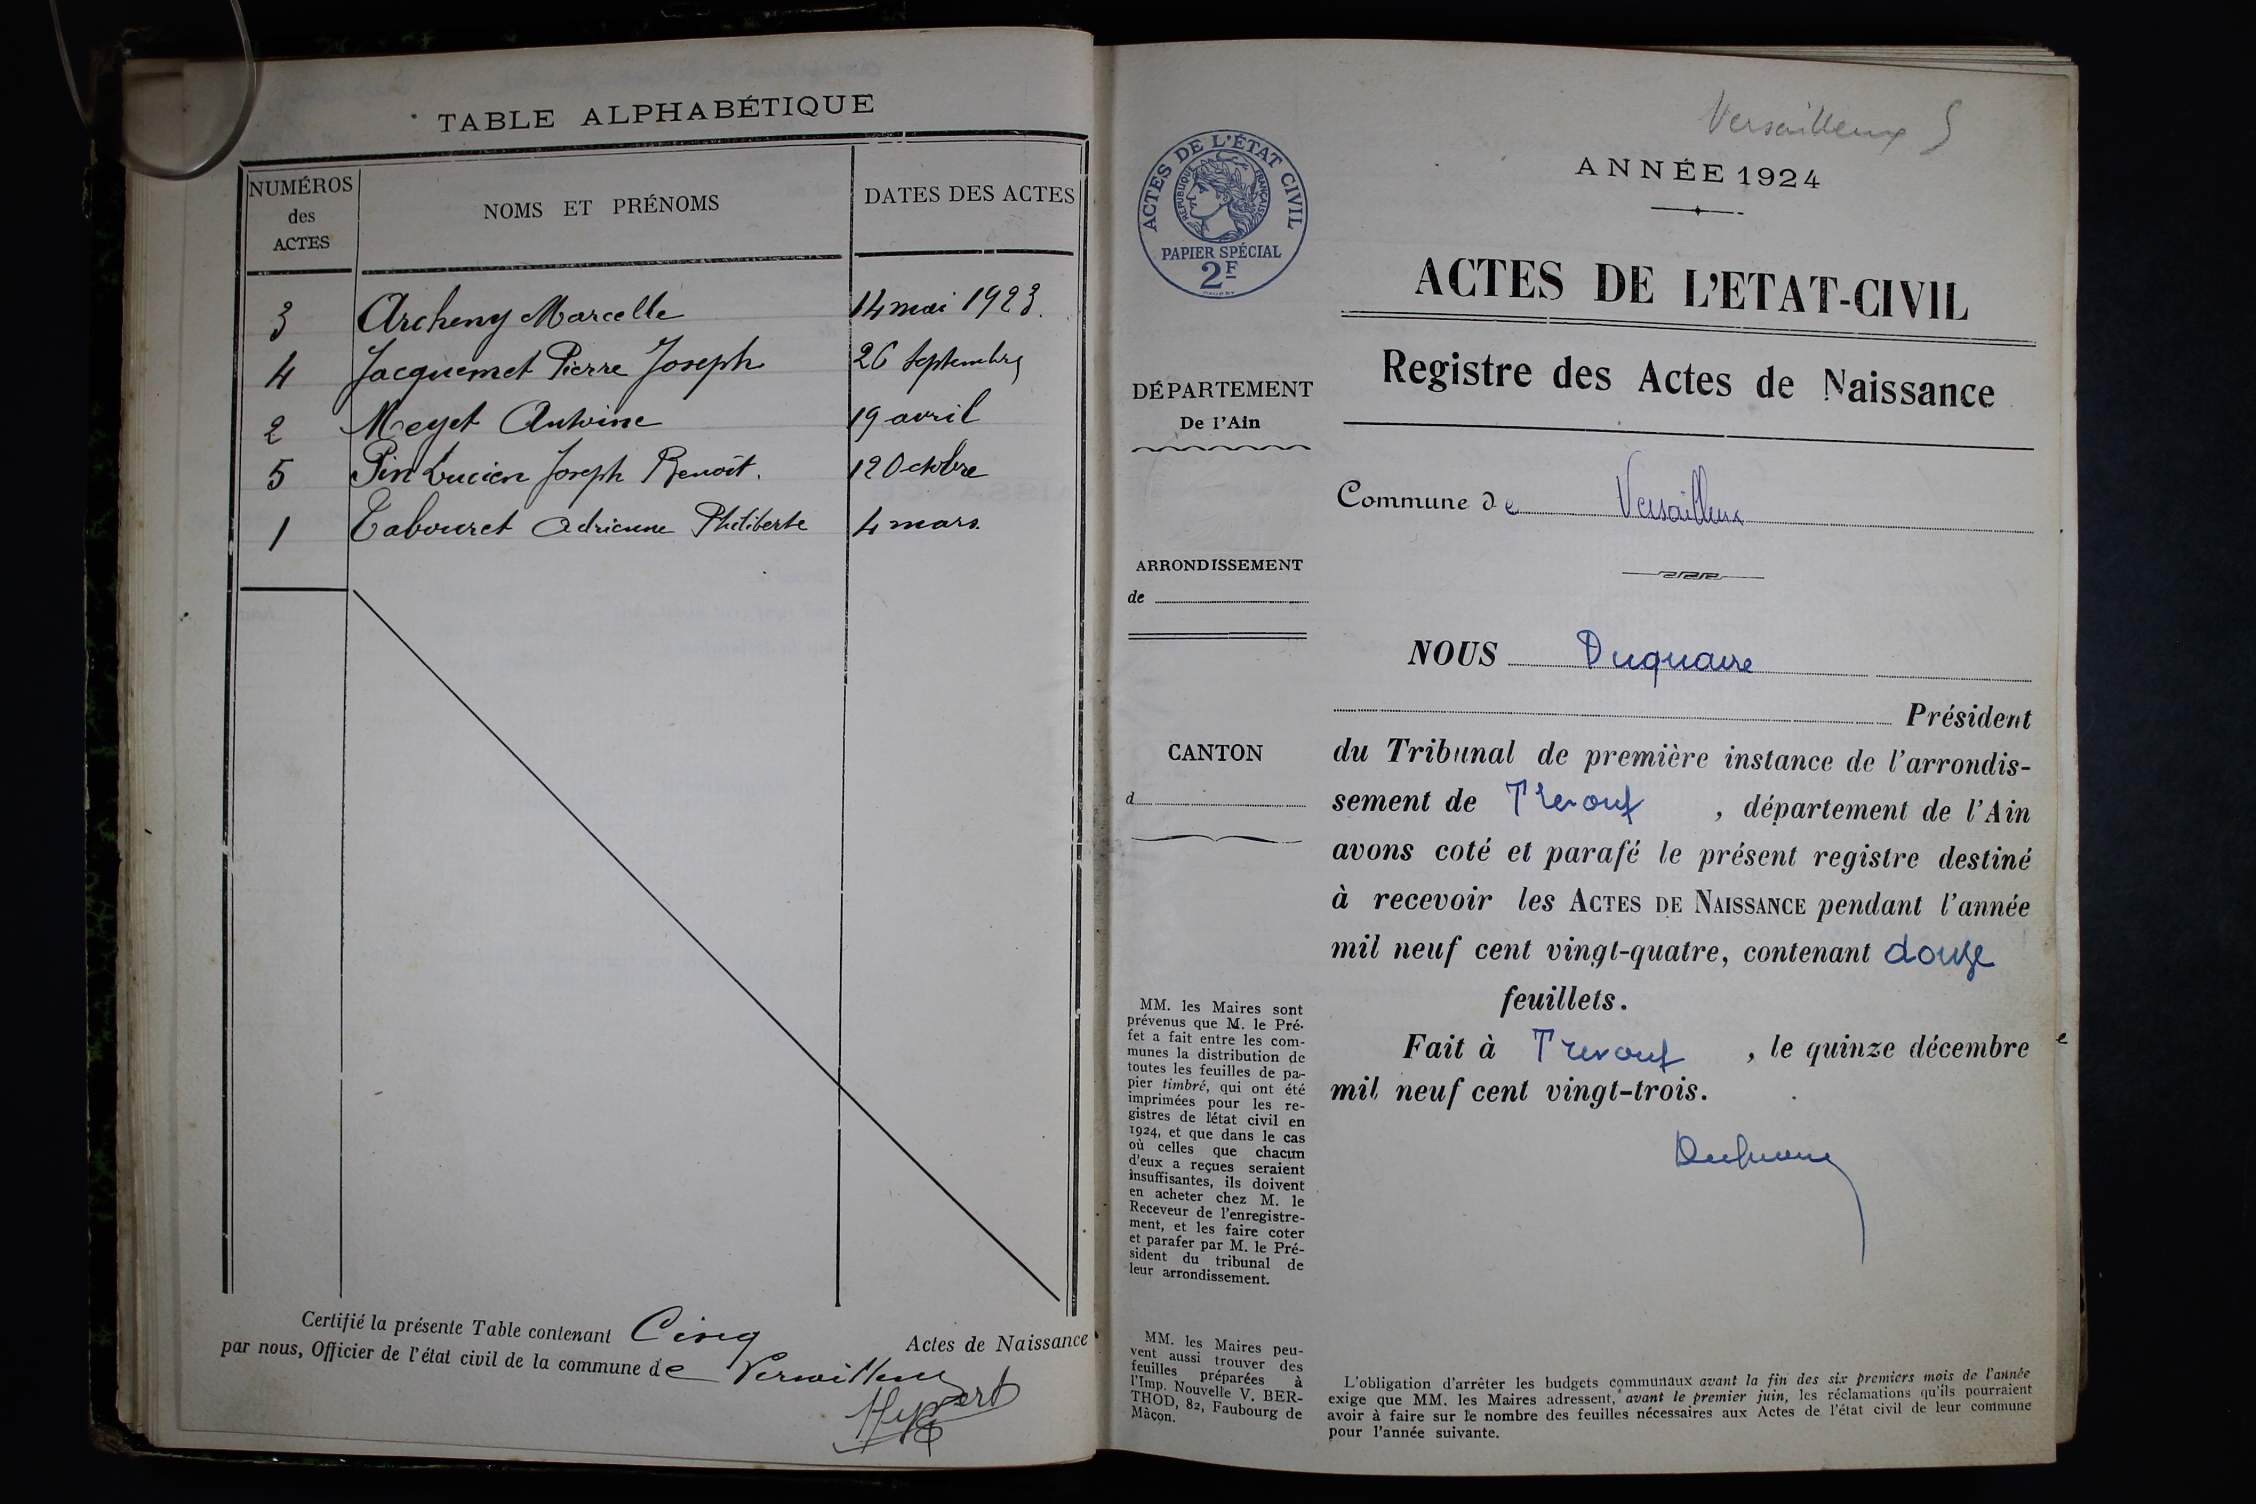 TABLE ALPHABÉTIQUE
NUMÉROS
des
ACTES
NOMS ET PRÉNOMS
DATES DES ACTES
3 Archeny Marcelle 14 mai 1923.
4 Jacquemet Pierre Joseph 26 Septembre
2 Meyet Antoine 19 avril
5 Pin Lucien Joseph Benoît. 12 Octobre
1 Tabouret Adrienne Philiberte 4 mars.
Certifié la présente Table contenant Cinq Actes de Naissance
par nous, Officier de l'état civil de la commune de Versailleux
Versailleux 5
ACTES DE L'ÉTAT CIVIL
RÉPUBLIQUE FRANÇAISE
PAPIER SPÉCIAL
2F
ANNÉE 1924
ACTES DE L'ETAT-CIVIL
Registre des Actes de Naissance
DÉPARTEMENT
De l'Ain
Commune de Versailleux
ARRONDISSEMENT
de
CANTON
d
NOUS Duquaire
Président
du Tribunal de première instance de l'arrondis-
sement de Trévoux , département de l'Ain
avons coté et parafé le présent registre destiné
à recevoir les ACTES DE NAISSANCE pendant l'année
mil neuf cent vingt-quatre, contenant douze
feuillets.
Fait à Trévoux , le quinze décembre
mil neuf cent vingt-trois.
MM. les Maires sont
prévenus que M. le Pré-
fet a fait entre les com-
munes la distribution de
toutes les feuilles de pa-
pier timbré, qui ont été
imprimées pour les re-
gistres de l'état civil en
1924, et que dans le cas
où celles que chacun
d'eux a reçues seraient
insuffisantes, ils doivent
en acheter chez M. le
Receveur de l'enregistre-
ment, et les faire coter
et parafer par M. le Pré-
sident du tribunal de
leur arrondissement.
MM. les Maires peu-
vent aussi trouver des
feuilles préparées à
l'Imp. Nouvelle V. BER-
THOD, 82, Faubourg de
Mâcon.
L'obligation d'arrêter les budgets communaux avant la fin des six premiers mois de l'année
exige que MM. les Maires adressent, avant le premier juin, les réclamations qu'ils pourraient
avoir à faire sur le nombre des feuilles nécessaires aux Actes de l'état civil de leur commune
pour l'année suivante.